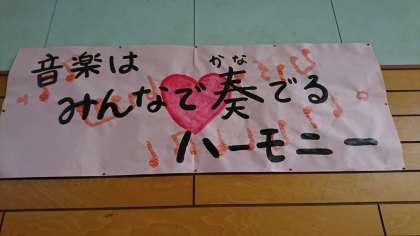 音楽は
みんなで奏でる
かな
ハーモニー